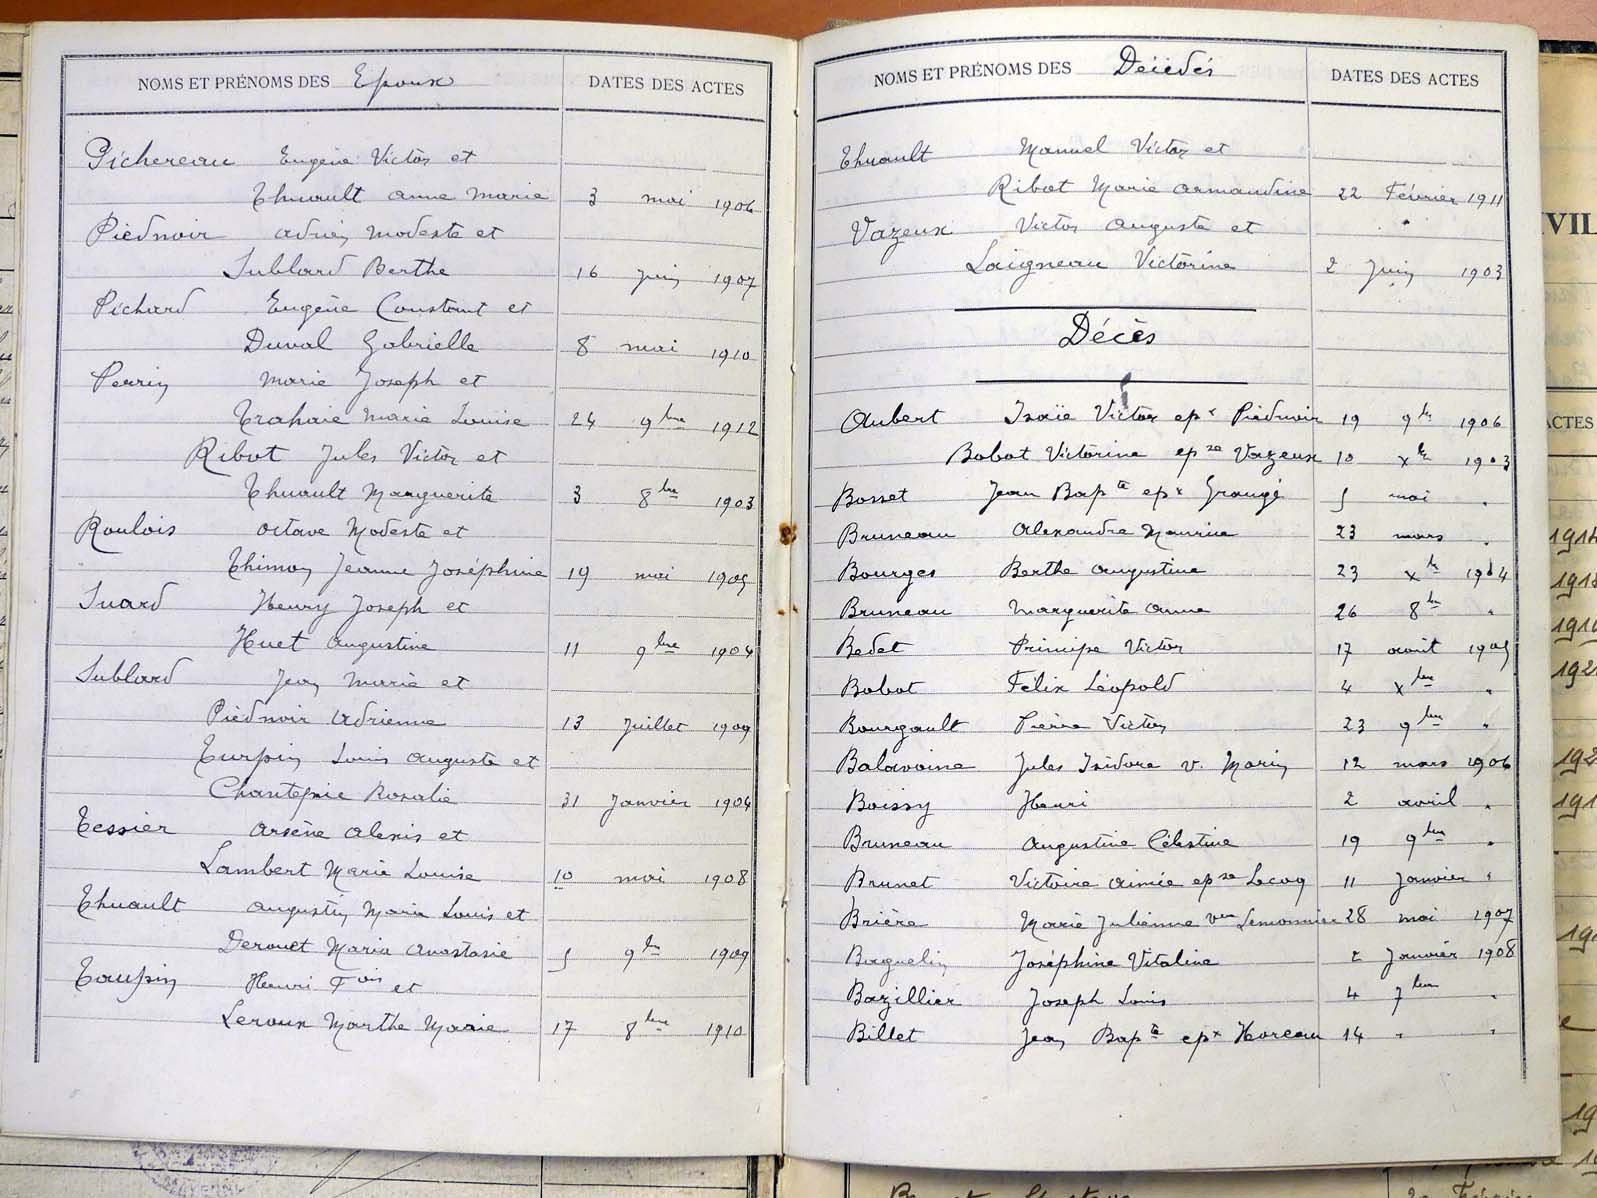 NOMS ET PRÉNOMS DES Epoux DATES DES ACTES
Pichereau Eugène Victor et
Thuault Anne Marie 3 mai 1906
Piednoir Adrien Modeste et
Sublard Berthe 16 Juin 1907
Pichard Eugène Constant et
Duval Gabrielle 8 mai 1910
Perrin Marie Joseph et
Trahaie Marie Louise 24 9bre 1912
Ribot Jules Victor et
Thuault Marguerite 3 8bre 1903
Roulois Octave Modeste et
Thimon Jeanne Joséphine 19 mai 1905
Suard Henry Joseph et
Huet Augustine 11 9bre 1904
Sublard Jean Marie et
Piednoir Adrienne 13 Juillet 1909
Turpin Louis Auguste et
Chantepie Rosalie 31 Janvier 1904
Tessier Arsène Alexis et
Lambert Marie Louise 10 mai 1908
Thuault Augustin Marie Louis et
Derouet Maria Anastasie 5 9bre 1909
Taupin Henri Fois et
Leroux Marthe Marie 17 8bre 1910
NOMS ET PRÉNOMS DES Décédés DATES DES ACTES
Thuault Manuel Victor et
Ribot Marie Armandine 22 Février 1911
Vazeux Victor Auguste et
Laigneau Victorine 2 Juin 1903
Décès
Aubert Isaïe Victor epx Piednoir 19 9bre 1906
Bobot Victorine epse Vazeux 10 Xbre 1903
Bosset Jean Bapte epx Grangé 5 mai "
Bruneau Alexandre Maurice 23 mars "
Bourges Berthe Augustine 23 Xbre 1904
Bruneau Marguerite Anne 26 8bre "
Bedet Principe Victor 17 août 1905
Bobot Félix Léopold 4 Xbre "
Bourgault Pierre Victor 23 9bre "
Balavoine Jules Isidore v. Marin 12 mars 1906
Boissy Henri 2 avril "
Bruneau Augustine Célestine 19 9bre "
Brunet Victoire Aimée epse Lecoq 11 Janvier "
Brière Marie Julienne vve Lemonnier 28 mai 1907
Baguelin Joséphine Vitaline 2 Janvier 1908
Bazillier Joseph Louis 4 7bre "
Billet Jean Bapte epx Horeau 14 " "
ACTES